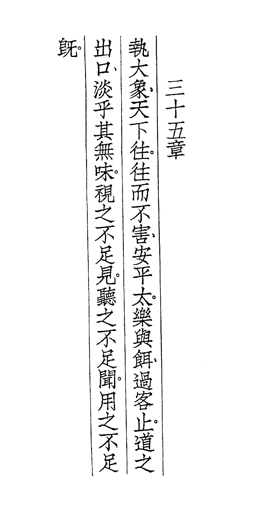 三十五章
執大象、天下往。往而不害、安平太。樂與餌、過客止。道之
出口、淡乎其無味。視之不足見。聽之不足聞。用之不足
既。